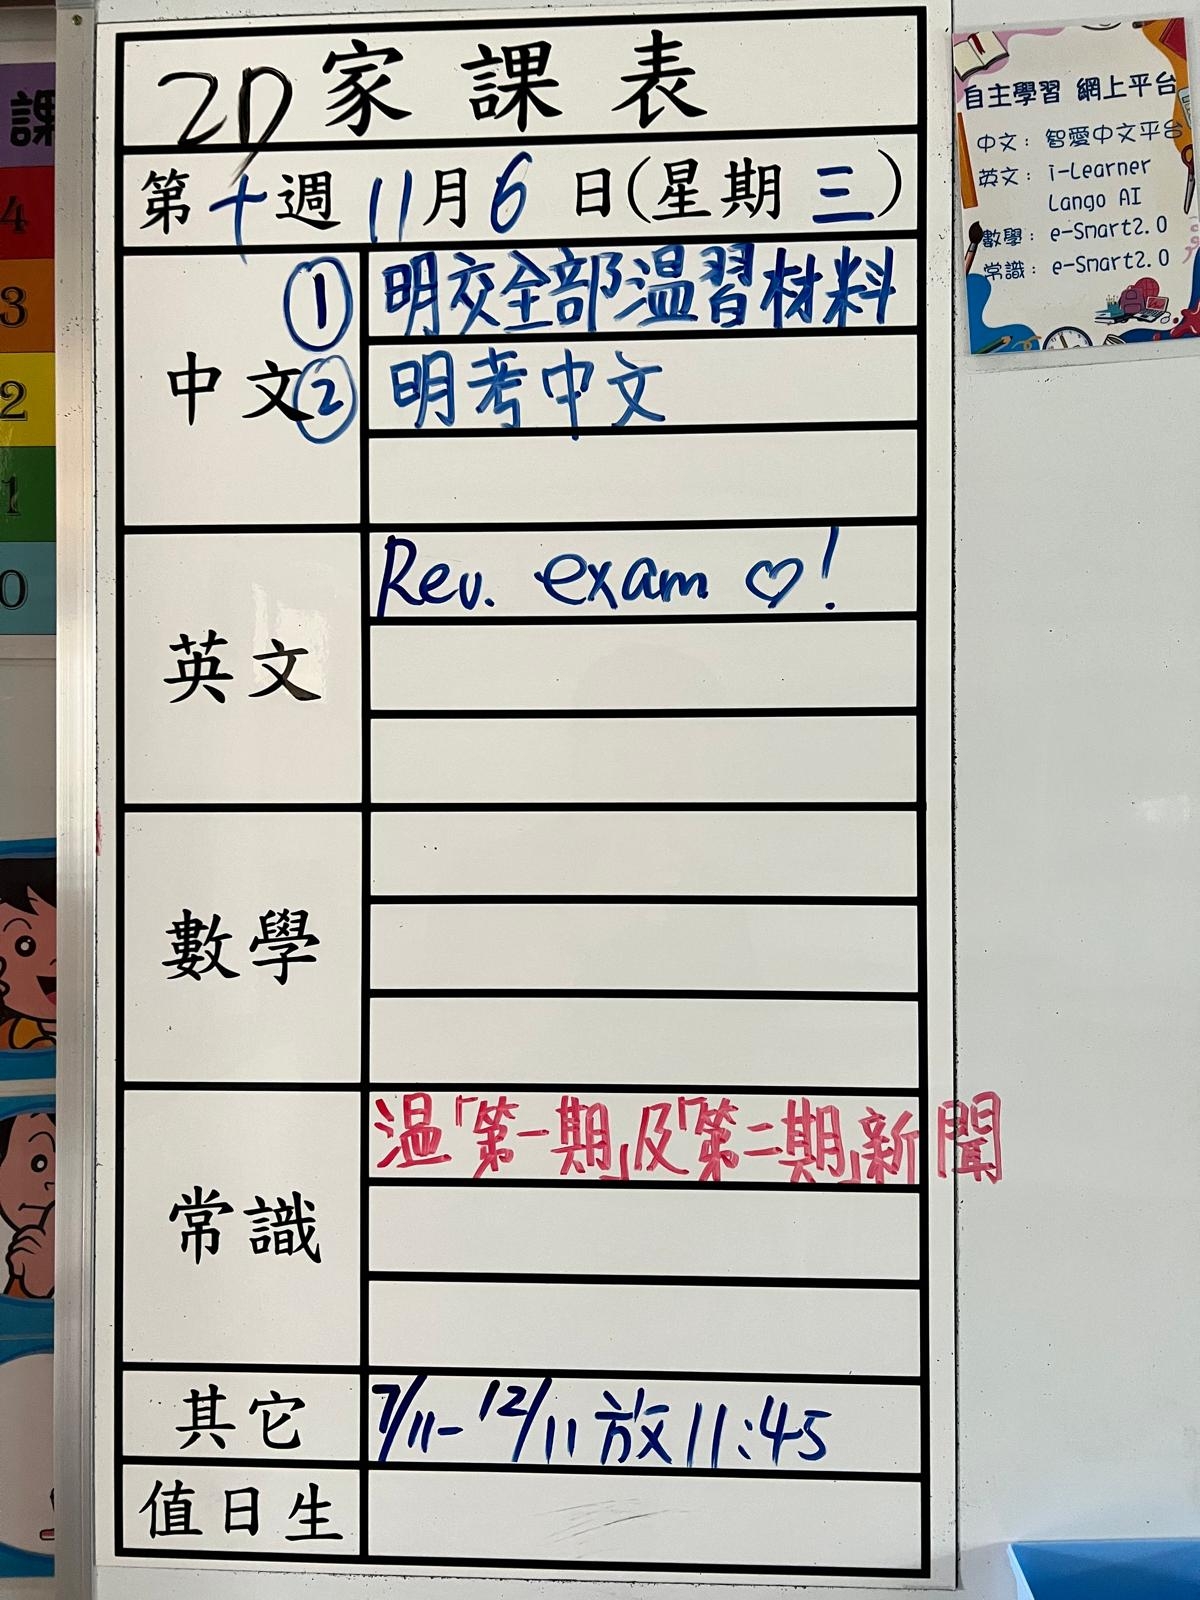 2D 家課表
第十週 11月6日(星期三)
中文
① 明交全部温習材料
② 明考中文
英文
Rev. exam ♡!
數學
常識
温「第一期」及「第二期」新聞
其它
7/11-12/11 放 11:45
值日生
自主學習 網上平台
中文: 智愛中文平台
英文: i-Learner
Lango AI
數學: e-Smart2.0
常識: e-Smart2.0
課
4
3
2
1
0